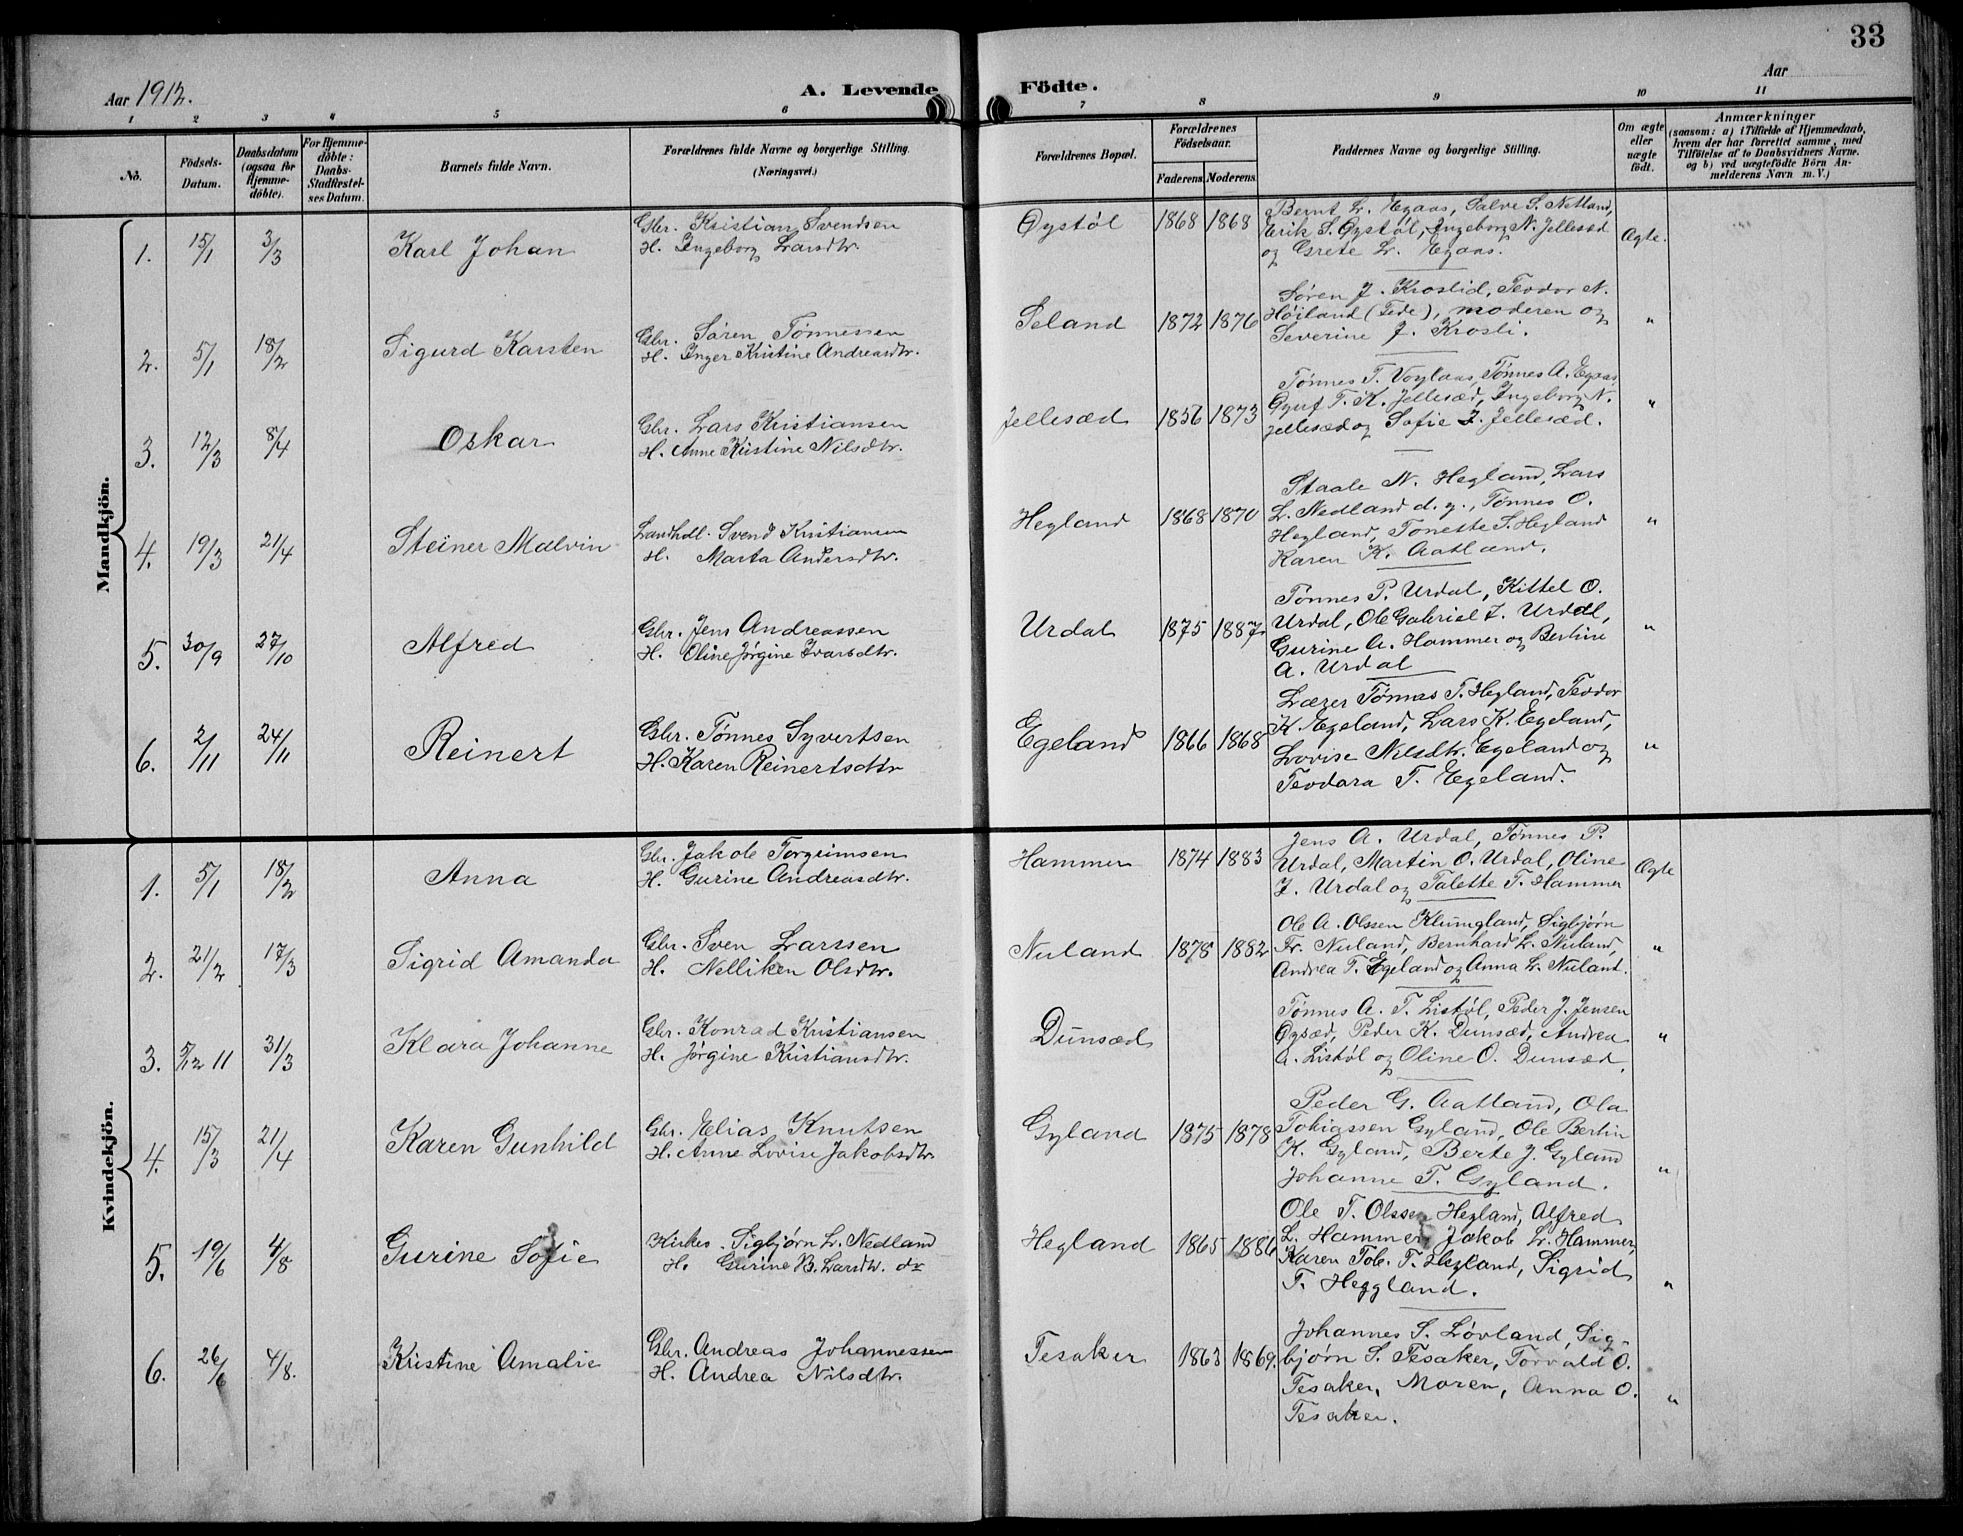 33
Aar 1912.
A. Levende Födte.
Aar
1 2 3 4 5 6 7 8 9 10 11
No.
Födsels-Datum.
Daabsdatum (ogsaa for Hjemme-döbte).
For Hjemme-döbte: Daabs-Stadfæstel-ses Datum.
Barnets fulde Navn.
Forældrenes fulde Navne og borgerlige Stilling. (Næringsvei.)
Forældrenes Bopæl.
Forældrenes Födselsaar.
Faderens Moderens
Faddernes Navne og borgerlige Stilling.
Om ægte eller uægte födt.
Anmærkninger (saasom: a) i Tilfælde af Hjemmedaab, hvem der har forrettet samme, med Tilföielse af to Daabsvidners Navne. og b) ved uægtefödte Börn An-melderens Navn m. V.)
Mandkjön.
1. 15/1 3/3 Karl Johan
Gbr. Kristian Svendsen
H. Ingeborg Larsdtr.
Øystøl 1868 1868
Bernt L. Egaas, Salve S. Netland,
Erik S. Øystøl, Ingeborg N. Jellesæd
og Grete L. Egaas.
Ægte.
2. 5/1 18/2 Sigurd Karsten
Gbr. Sören Tönnessen
H. Inger Kristine Andreasdtr.
Seland 1872 1876
Søren J. Kroslid, Teodor N.
Høiland (Fede), moderen og
Severine J. Krosli.
"
3. 12/3 8/4 Oskar
Gbr. Lars Kristiansen
H. Anne Kristine Nilsdtr.
Jellesæd 1856 1873
Tønnes T. Voglaas, Tønnes A. Egaas,
T. K. Jellesæd, Ingeborg N.
Jellesæd og Sofie J. Jellesæd.
"
4. 19/3 21/4 Steiner Malvin
Landhdl. Svend Kristiansen
H. Marta Andersdtr.
Hegland 1868 1870
Staale N. Hegland, Lars
L. Nedland d. y., Tønnes O.
Hegland, Tonette S. Hegland
Karen K. Aatland.
"
5. 30/9 27/10 Alfred
Gbr. Jens Andreassen
H. Oline Jørgine Ivarsdtr.
Urdal 1875 1887
Tønnes P. Urdal, Kittel O.
Urdal, Ole Gabriel J. Urdal,
Gurine A. Hammer og Berline
A. Urdal
"
6. 2/11 24/11 Reinert
Gbr. Tönnes Syvertsen
H. Karen Reinertsdtr
Egeland 1866 1868
Lærer Tønnes T. Hegland, Teodor
K. Egeland, Lars K. Egeland,
Lovise Nilsdtr. Egeland og
Teodara T. Egeland.
"
Kvindekjön.
1. 5/1 18/2 Anna
Gbr. Jakob Torgrimsen
H. Gurine Andreasdtr.
Hammer 1874 1883
Jens A. Urdal, Tønnes P.
Urdal, Martin O. Urdal, Oline
J. Urdal og Talette T. Hammer
Ægte
2. 21/2 17/3 Sigrid Amanda
Gbr. Sven Larssen
H. Nelliken Olsdtr.
Nuland 1878 1882
Ole A. Olssen Klungland, Sigbjørn
Tr. Nuland, Bernhard L. Nuland,
Andrea T. Egeland og Anna L. Nuland.
"
3. 5/12 11 31/3 Klara Johanne
Gbr. Konrad Kristiansen
H. Jørgine Kristiansdtr.
Dunsæd
Tønnes A. T. Listøl, Peder J. Jensen
Øysæd, Peder K. Dunsæd, Andrea
A. Listøl og Oline O. Dunsæd.
"
4. 15/3 21/4 Karen Gunhild
Gbr. Elias Knutsen
H. Anne Lovise Jakobsdtr.
Gyland 1875 1878
Peder G. Aatland, Ola
Tobiassen Gyland, Ole Berlin
K. Gyland, Berte J. Gyland
Johanne T. Gyland.
"
5. 19/6 4/8 Gurine Sofie
Kirkes. Sigbjørn L. Nedland
H. Gurine B. Larsdtr. do
Hegland 1865 1886
Ole T. Olssen Hegland, Alfred
L. Hammer, Jakob L. Hammer,
Karen Tob. T. Hegland, Sigrid
T. Heggland.
"
6. 26/6 4/8. Kristine Amalie
Gbr. Andreas Johannessen
H. Andrea Nilsdtr.
Tesaker 1863 1869.
Johannes S. Løvland, Sig-
bjørn S. Tesaker, Torvald O.
Tesaker, Moren, Anna O.
Tesaker.
"